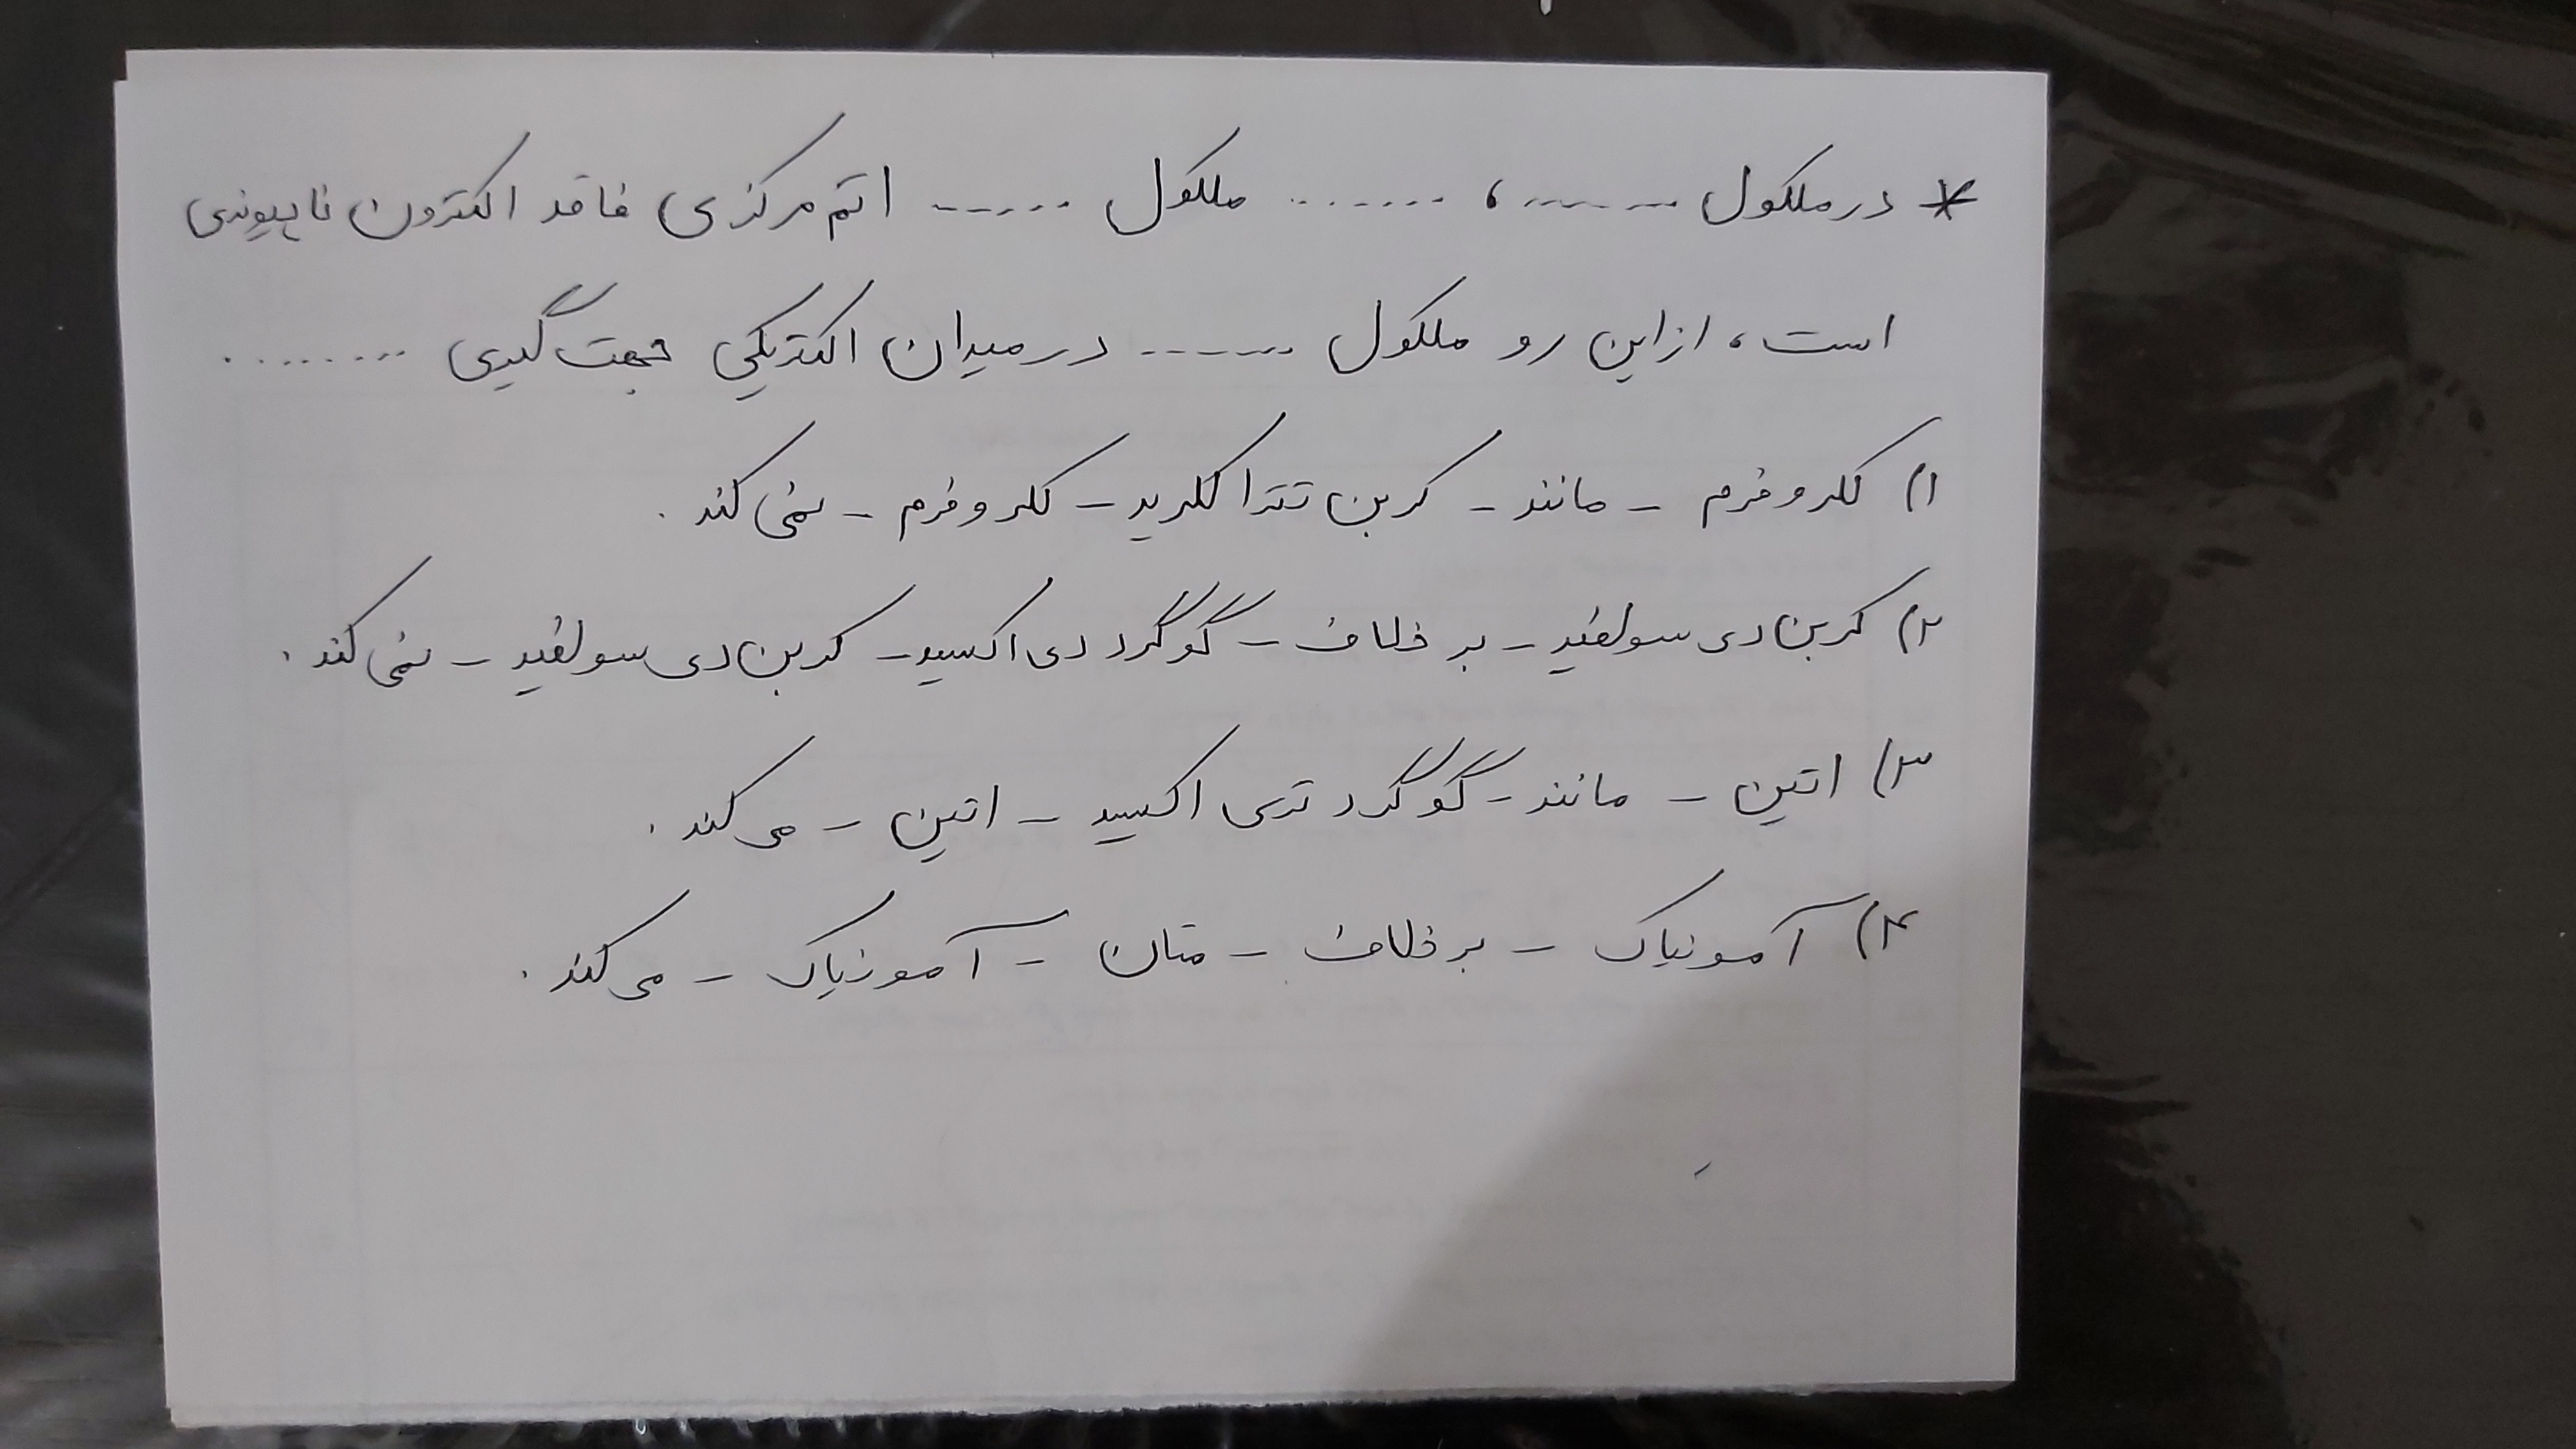 * در مولکول ..... ، ..... مولکول ..... اتم مرکزی فاقد الکترون ناپیوندی
است ، از این رو مولکول ..... در میدان الکتریکی جهت گیری .....
۱) کلروفرم - مانند - کربن تتراکلرید - کلروفرم - نمی کند .
۲) کربن دی سولفید - بر خلاف - گوگرد دی اکسید - کربن دی سولفید - نمی کند .
۳) اتین - مانند - گوگرد تری اکسید - اتین - می کند .
۴) آمونیاک - بر خلاف - متان - آمونیاک - می کند .